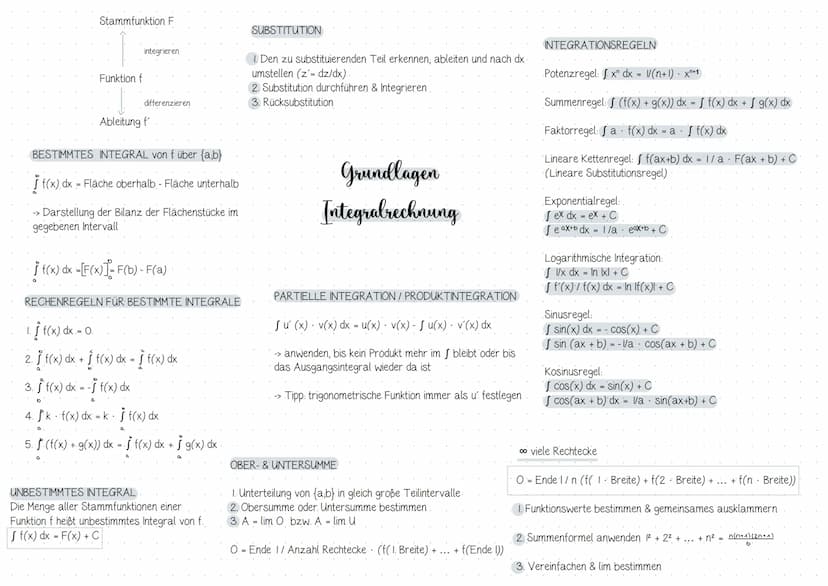 Stammfunktion F
integrieren
Funktion f
differenzieren
Ableitung f'
BESTIMMTES INTEGRAL von f über {a,b}
∫ₐᵇ f(x) dx = Fläche oberhalb - Fläche unterhalb
-> Darstellung der Bilanz der Flächenstücke im
gegebenen Intervall
∫ₐᵇ f(x) dx =[F(x)]ₐᵇ= F(b) - F(a)
RECHENREGELN FÜR BESTIMMTE INTEGRALE
1. ∫ f(x) dx = 0
2. ∫ f(x) dx + ∫ f(x) dx = ∫ f(x) dx
3. ∫ f(x) dx = -∫ f(x) dx
4. ∫ k · f(x) dx = k · ∫ f(x) dx
5. ∫ (f(x) + g(x)) dx = ∫ f(x) dx + ∫ g(x) dx
UNBESTIMMTES INTEGRAL
Die Menge aller Stammfunktionen einer
Funktion f heißt unbestimmtes Integral von f.
∫ f(x) dx = F(x) + C
SUBSTITUTION
1. Den zu substituierenden Teil erkennen, ableiten und nach dx
umstellen (z'= dz/dx)
2. Substitution durchführen & Integrieren
3. Rücksubstitution
Grundlagen
Integralrechnung
PARTIELLE INTEGRATION / PRODUKTINTEGRATION
∫ u' (x) · v(x) dx = u(x) · v(x) - ∫ u(x) · v'(x) dx
-> anwenden, bis kein Produkt mehr im ∫ bleibt oder bis
das Ausgangsintegral wieder da ist
-> Tipp: trigonometrische Funktion immer als u' festlegen
OBER- & UNTERSUMME
1. Unterteilung von {a,b} in gleich große Teilintervalle
2. Obersumme oder Untersumme bestimmen
3. A = lim O bzw. A = lim U
O = Ende 1 / Anzahl Rechtecke · (f(1. Breite) + ... + f(Ende 1))
INTEGRATIONSREGELN
Potenzregel: ∫ xⁿ dx = 1/(n+1) · xⁿ⁺¹
Summenregel: ∫ (f(x) + g(x)) dx = ∫ f(x) dx + ∫ g(x) dx
Faktorregel: ∫ a · f(x) dx = a · ∫ f(x) dx
Lineare Kettenregel: ∫ f(ax+b) dx = 1 / a · F(ax + b) + C
(Lineare Substitutionsregel)
Exponentialregel:
∫ eˣ dx = eˣ + C
∫ e^(ax+b) dx = 1/a · e^(ax+b) + C
Logarithmische Integration:
∫ 1/x dx = ln |x| + C
∫ f'(x) / f(x) dx = ln |f(x)| + C
Sinusregel:
∫ sin(x) dx = - cos(x) + C
∫ sin (ax + b) = -1/a · cos(ax + b) + C
Kosinusregel:
∫ cos(x) dx = sin(x) + C
∫ cos(ax + b) dx = 1/a · sin(ax+b) + C
∞ viele Rechtecke
O = Ende 1 / n (f( 1 · Breite) + f(2 · Breite) + ... + f(n · Breite))
1. Funktionswerte bestimmen & gemeinsames ausklammern
2. Summenformel anwenden 1² + 2² + ... + n² = n(n+1)(2n+1)/6
3. Vereinfachen & lim bestimmen